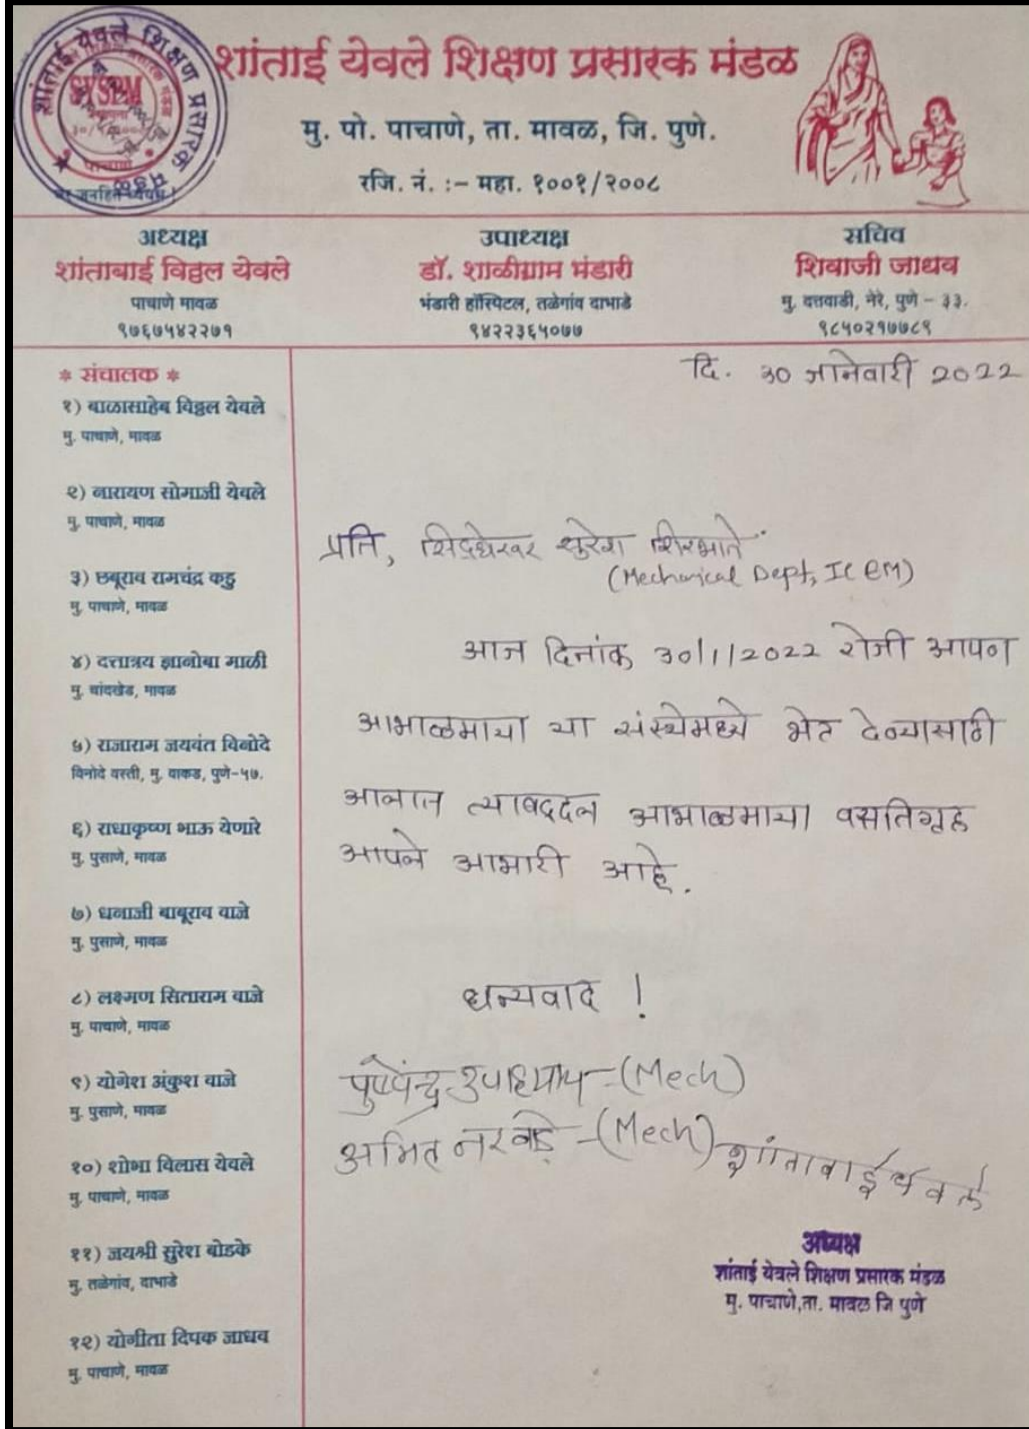 शांताई येवले शिक्षण प्रसारक मंडळ
SYSPM
पाचाणे
शांताई येवले शिक्षण प्रसारक मंडळ
मु. पो. पाचाणे, ता. मावळ, जि. पुणे.
रजि. नं. :– महा. १००१/२००८
अध्यक्ष
शांताबाई विठ्ठल येवले
पाचाणे मावळ
९७६७५४२२७१
उपाध्यक्ष
डॉ. शाळीग्राम भंडारी
भंडारी हॉस्पिटल, तळेगांव दाभाडे
९४२२३६५०७७
सचिव
शिवाजी जाधव
मु. दत्तवाडी, नेरे, पुणे – ३३.
९८५०२१७७८९
* संचालक *
१) बाळासाहेब विठ्ठल येवले
मु. पाचाणे, मावळ
२) नारायण सोमाजी येवले
मु. पाचाणे, मावळ
३) छबूराव रामचंद्र कडु
मु. पाचाणे, मावळ
४) दत्तात्रय ज्ञानोबा माळी
मु. चांदखेड, मावळ
५) राजाराम जयवंत विनोदे
विनोदे वस्ती, मु. वाकड, पुणे-५७.
६) राधाकृष्ण भाऊ येणारे
मु. पुसाणे, मावळ
७) धनाजी बाबूराव वाजे
मु. पुसाणे, मावळ
८) लक्ष्मण सिताराम वाजे
मु. पाचाणे, मावळ
९) योगेश अंकुश वाजे
मु. पुसाणे, मावळ
१०) शोभा विलास येवले
मु. पाचाणे, मावळ
११) जयश्री सुरेश बोडके
मु. तळेगांव, दाभाडे
१२) योगीता दिपक जाधव
मु. पाचाणे, मावळ
दि. 30 जानेवारी 2022
प्रति, सिद्धेश्वर सुरेश शिरभाते
(Mechanical Dept, ICEM)
आज दिनांक 30/1/2022 रोजी आपण
आभाळमाया या संस्थेमध्ये भेट देण्यासाठी
आलात त्याबद्दल आभाळमाया वसतिगृह
आपले आभारी आहे.
धन्यवाद !
पुष्पेंद्र उपाध्याय – (Mech)
अमित नरवाडे – (Mech)
शांताबाई येवले
अध्यक्ष
शांताई येवले शिक्षण प्रसारक मंडळ
मु. पाचाणे,ता. मावळ जि पुणे